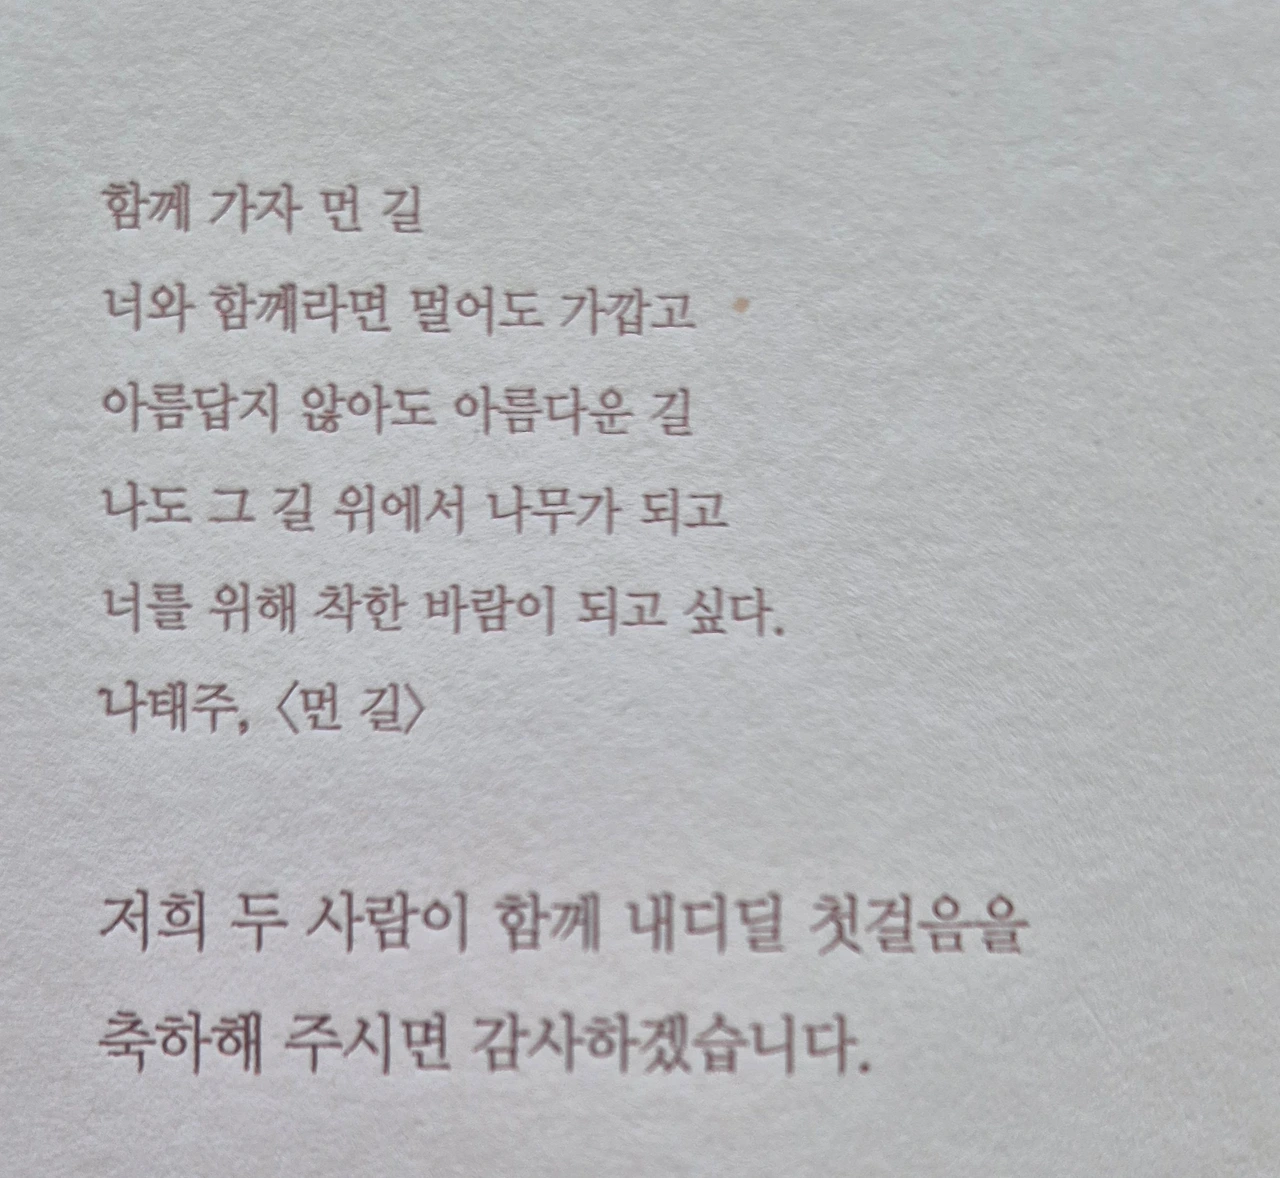 함께 가자 먼 길
너와 함께라면 멀어도 가깝고
아름답지 않아도 아름다운 길
나도 그 길 위에서 나무가 되고
너를 위해 착한 바람이 되고 싶다.
나태주, 〈먼 길〉
저희 두 사람이 함께 내디딜 첫걸음을
축하해 주시면 감사하겠습니다.